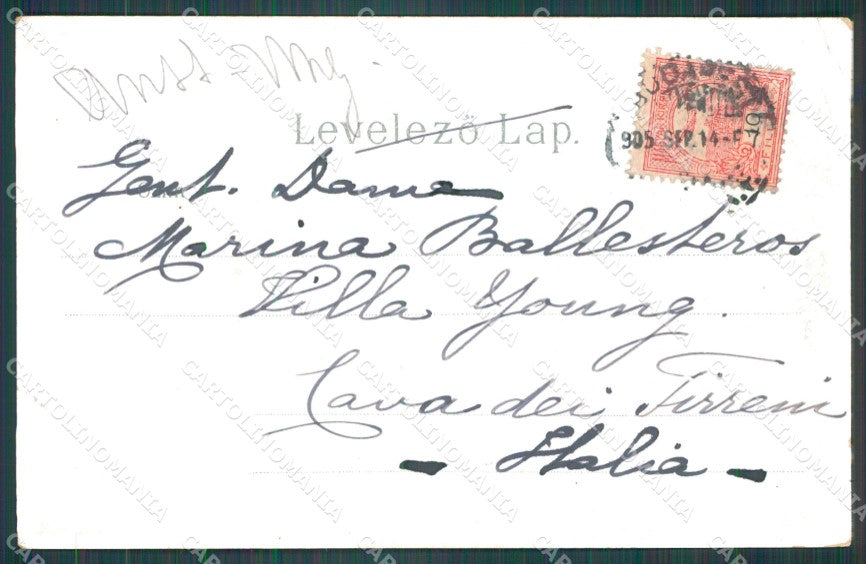 Levelező Lap.
BUDAPEST
905 SEP. 14
Gent. Dama
Marina Ballesteros
Villa Young.
Cava dei Tirreni
- Italia -
CARTOLINOMANIA